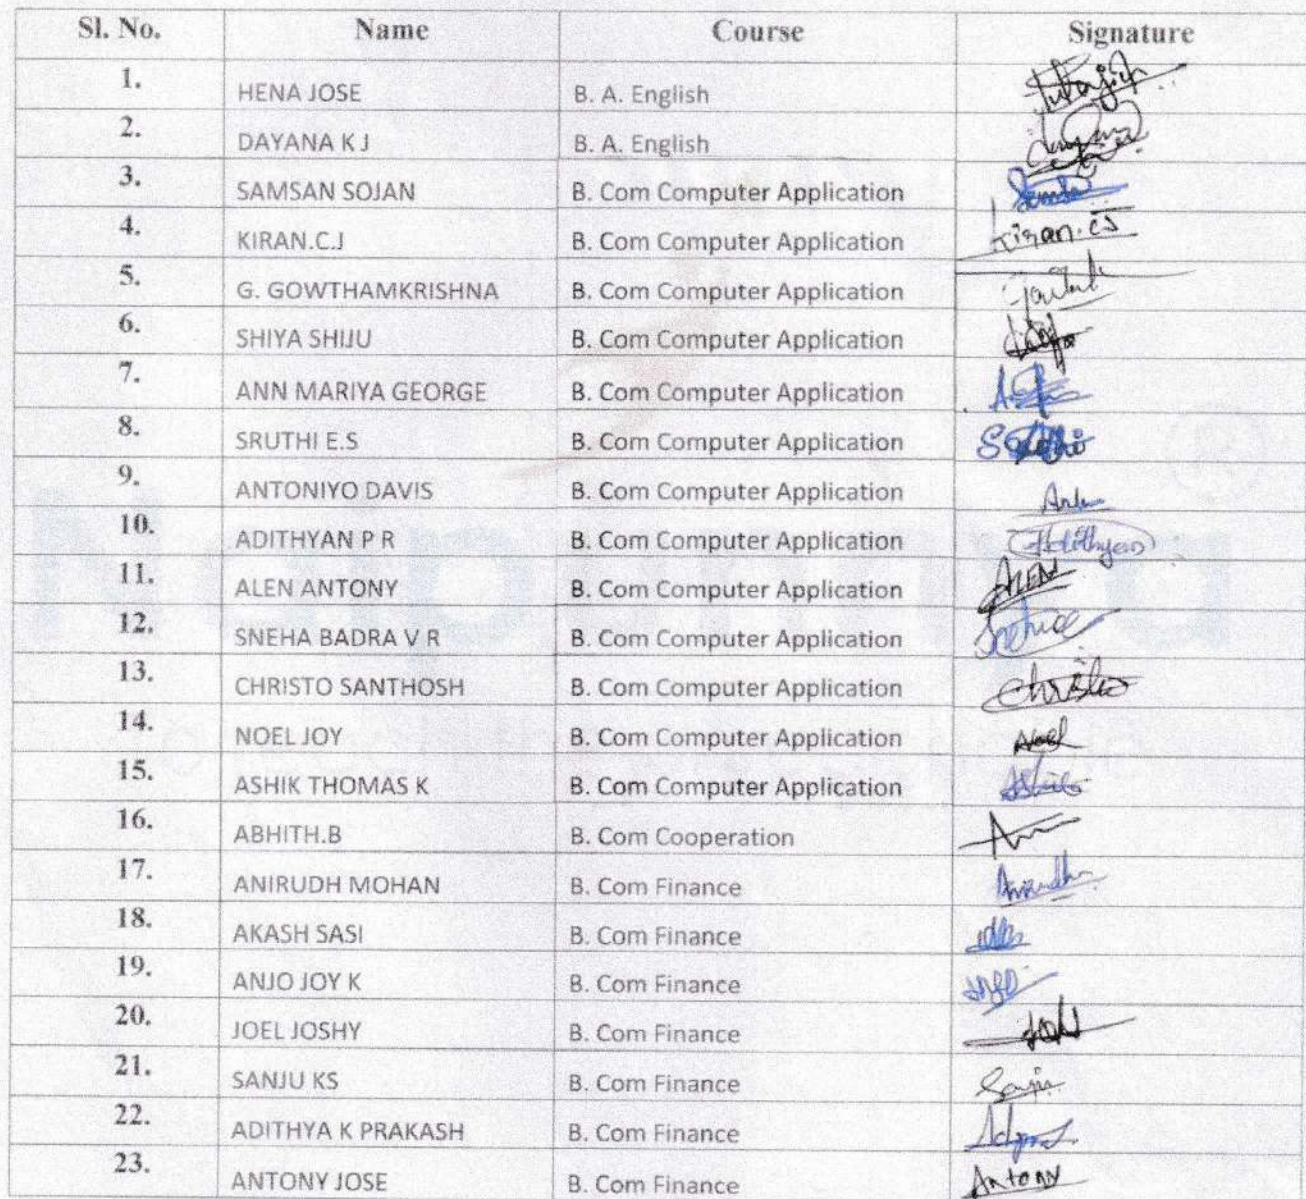 Sl. No. Name Course Signature
1. HENA JOSE B. A. English
2. DAYANA K J B. A. English
3. SAMSAN SOJAN B. Com Computer Application
4. KIRAN.C.J B. Com Computer Application Kiran.CJ
5. G. GOWTHAMKRISHNA B. Com Computer Application
6. SHIYA SHIJU B. Com Computer Application
7. ANN MARIYA GEORGE B. Com Computer Application
8. SRUTHI E.S B. Com Computer Application
9. ANTONIYO DAVIS B. Com Computer Application
10. ADITHYAN P R B. Com Computer Application Adithyan
11. ALEN ANTONY B. Com Computer Application ALEN
12. SNEHA BADRA V R B. Com Computer Application
13. CHRISTO SANTHOSH B. Com Computer Application Christo
14. NOEL JOY B. Com Computer Application Noel
15. ASHIK THOMAS K B. Com Computer Application
16. ABHITH.B B. Com Cooperation
17. ANIRUDH MOHAN B. Com Finance Anirudh
18. AKASH SASI B. Com Finance
19. ANJO JOY K B. Com Finance
20. JOEL JOSHY B. Com Finance
21. SANJU KS B. Com Finance Sanju
22. ADITHYA K PRAKASH B. Com Finance
23. ANTONY JOSE B. Com Finance Antony